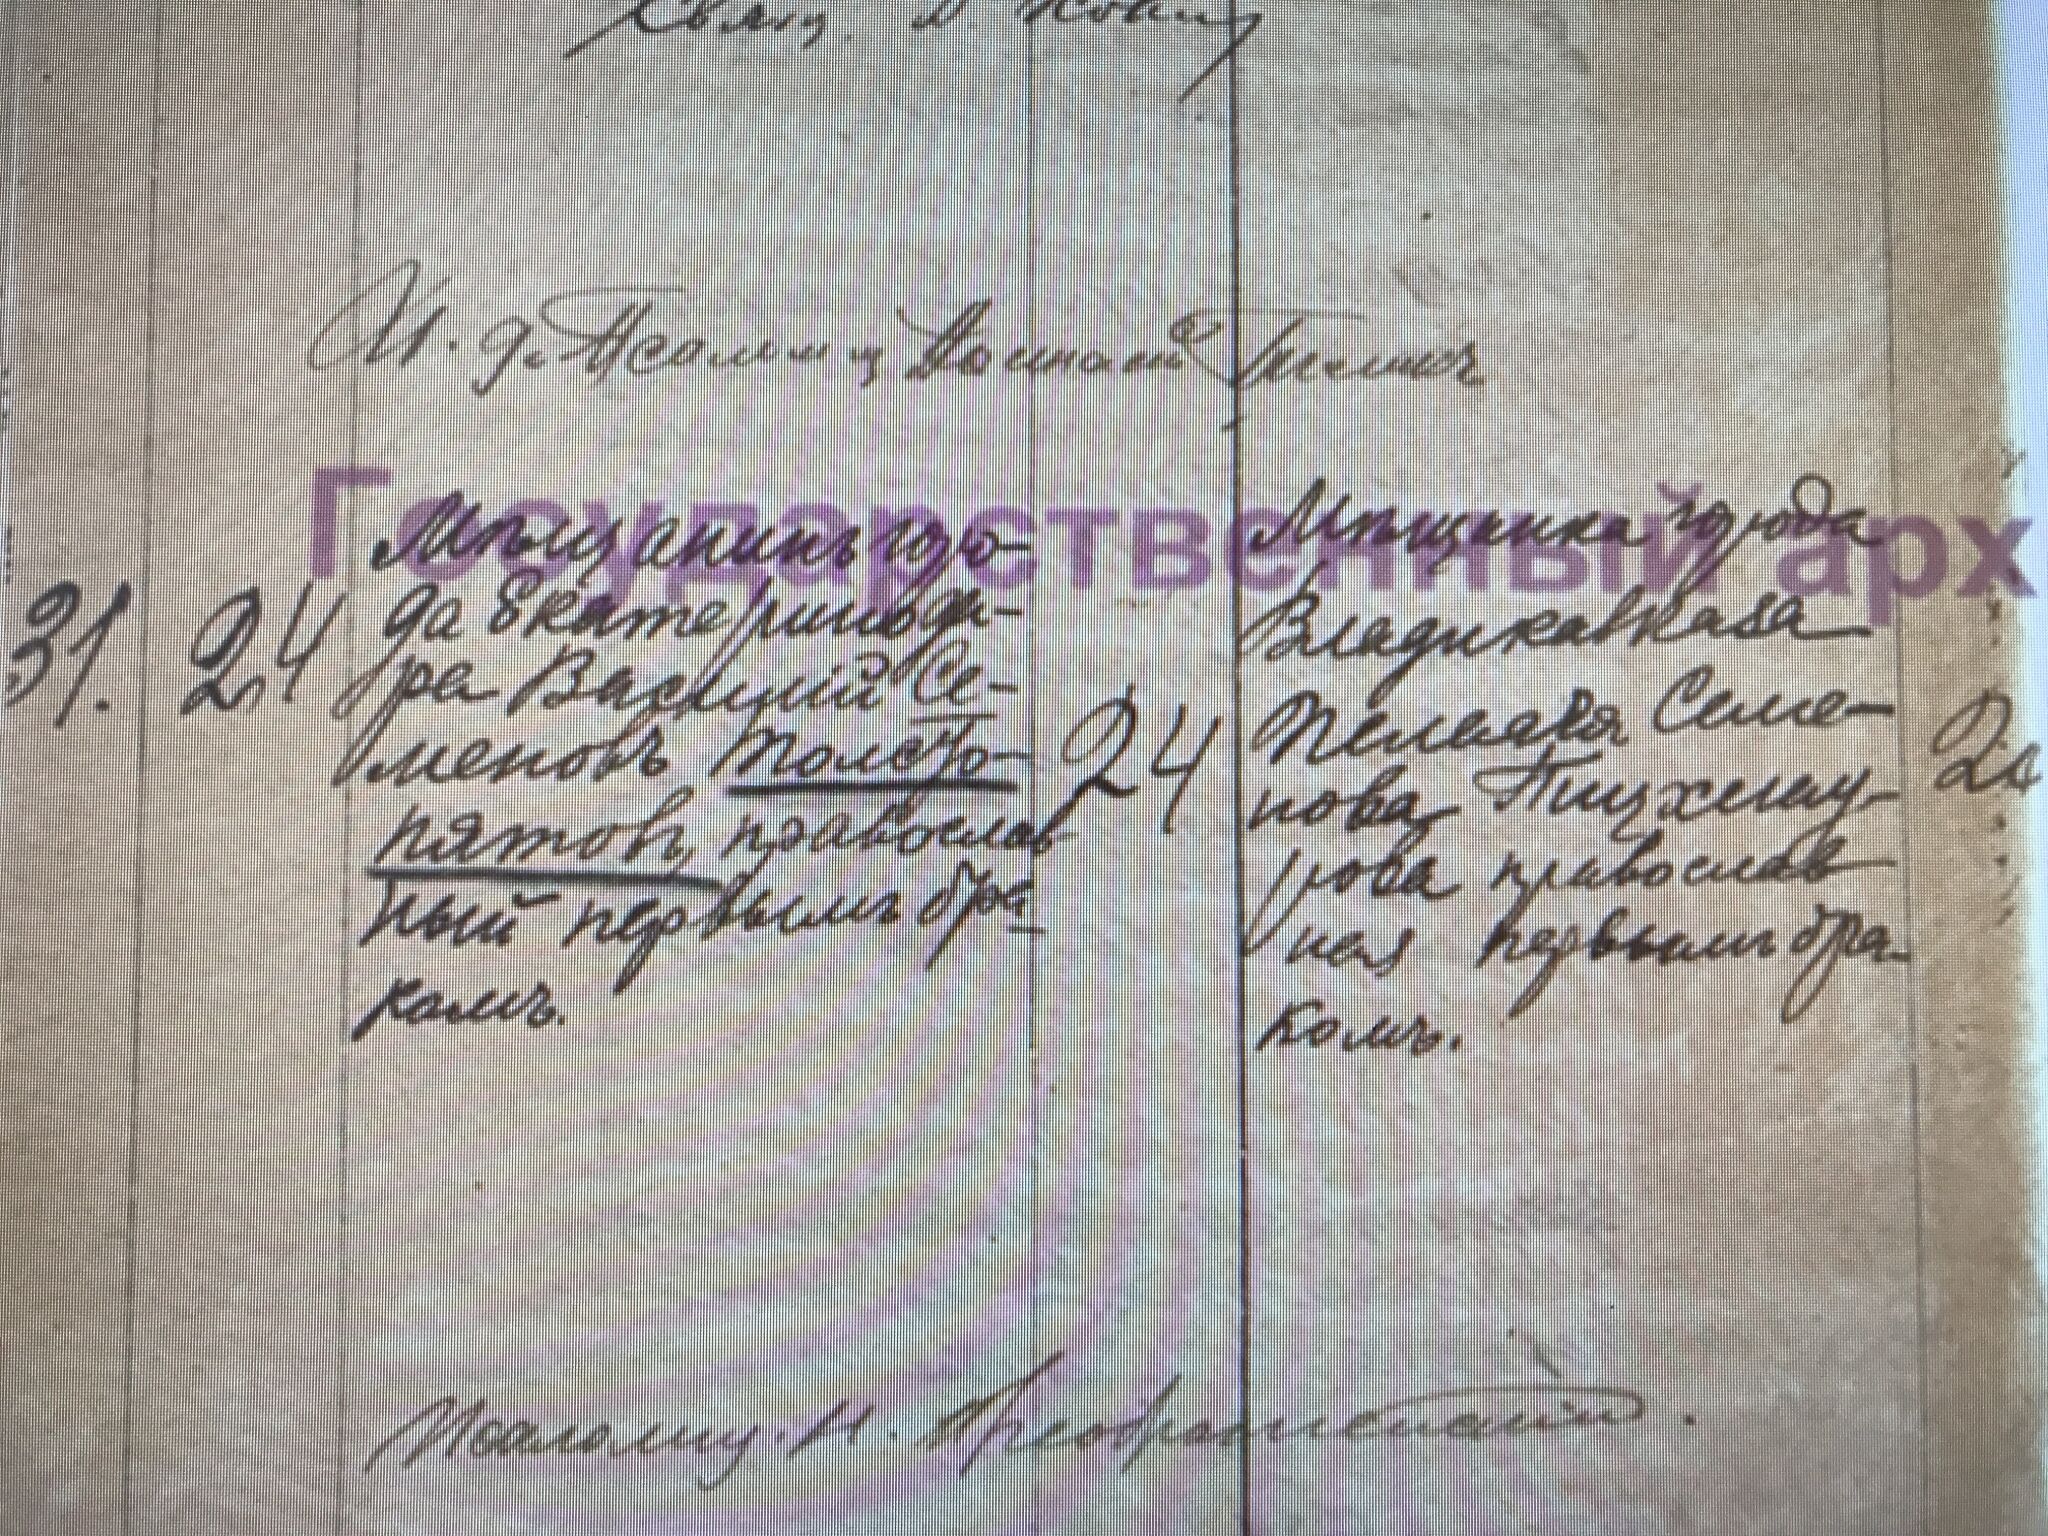 Государственный арх
31. 24
Мѣщанинъ горо-
да Екатеринода-
ра Василій Се-
меновъ Толсто-
пятовъ, православ
ный первымъ бра-
комъ.
24
Мѣщанка города
Владикавказа
Пелагія Семе-
нова Пицхелау-
рова православ
ная первымъ бра-
комъ.
Псаломщ. Н. Преображенскій.